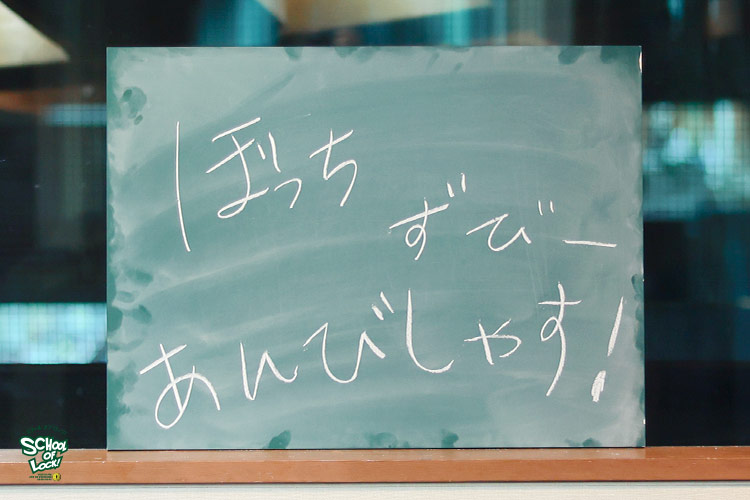 ぼっち
ずびー
あんびしゃす!
SCHOOL
OF
LOCK!